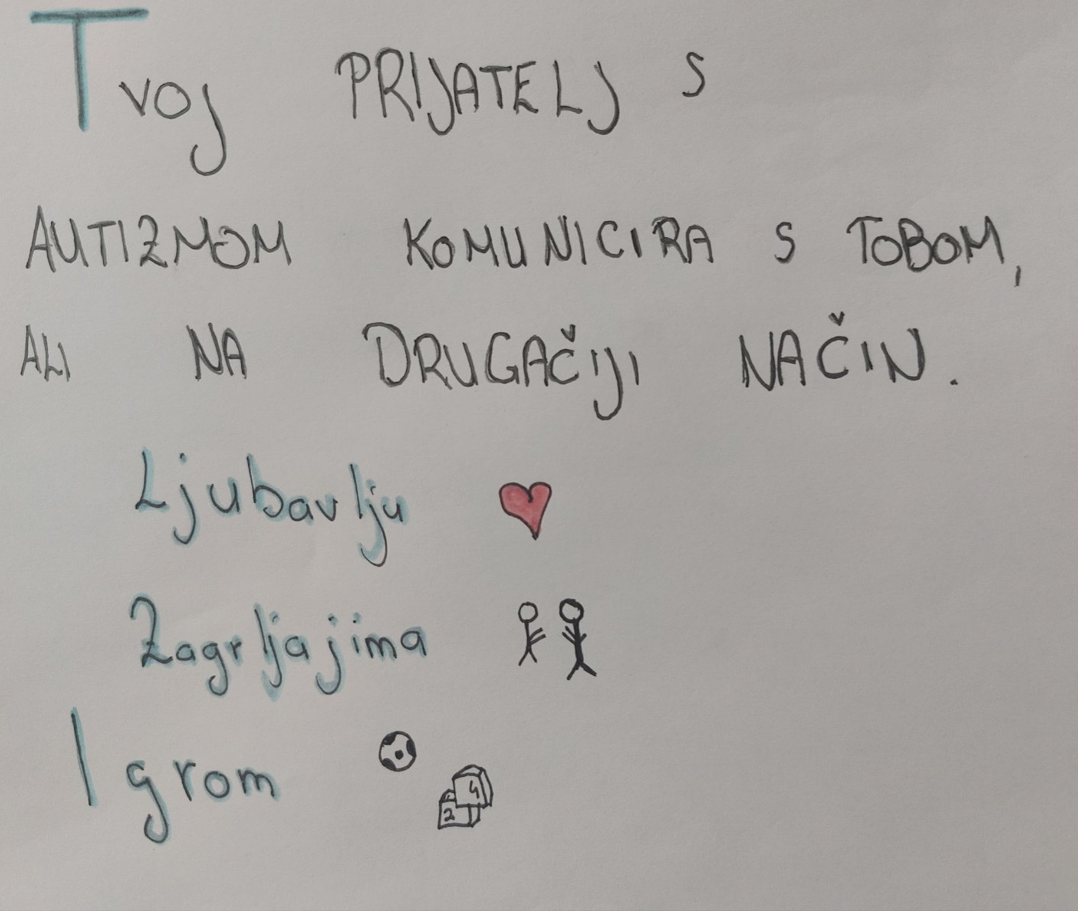 Tvoj PRIJATELJ S
AUTIZMOM KOMUNICIRA S TOBOM,
ALI NA DRUGAČIJI NAČIN.
Ljubavlju
Zagrljajima
Igrom
4
2